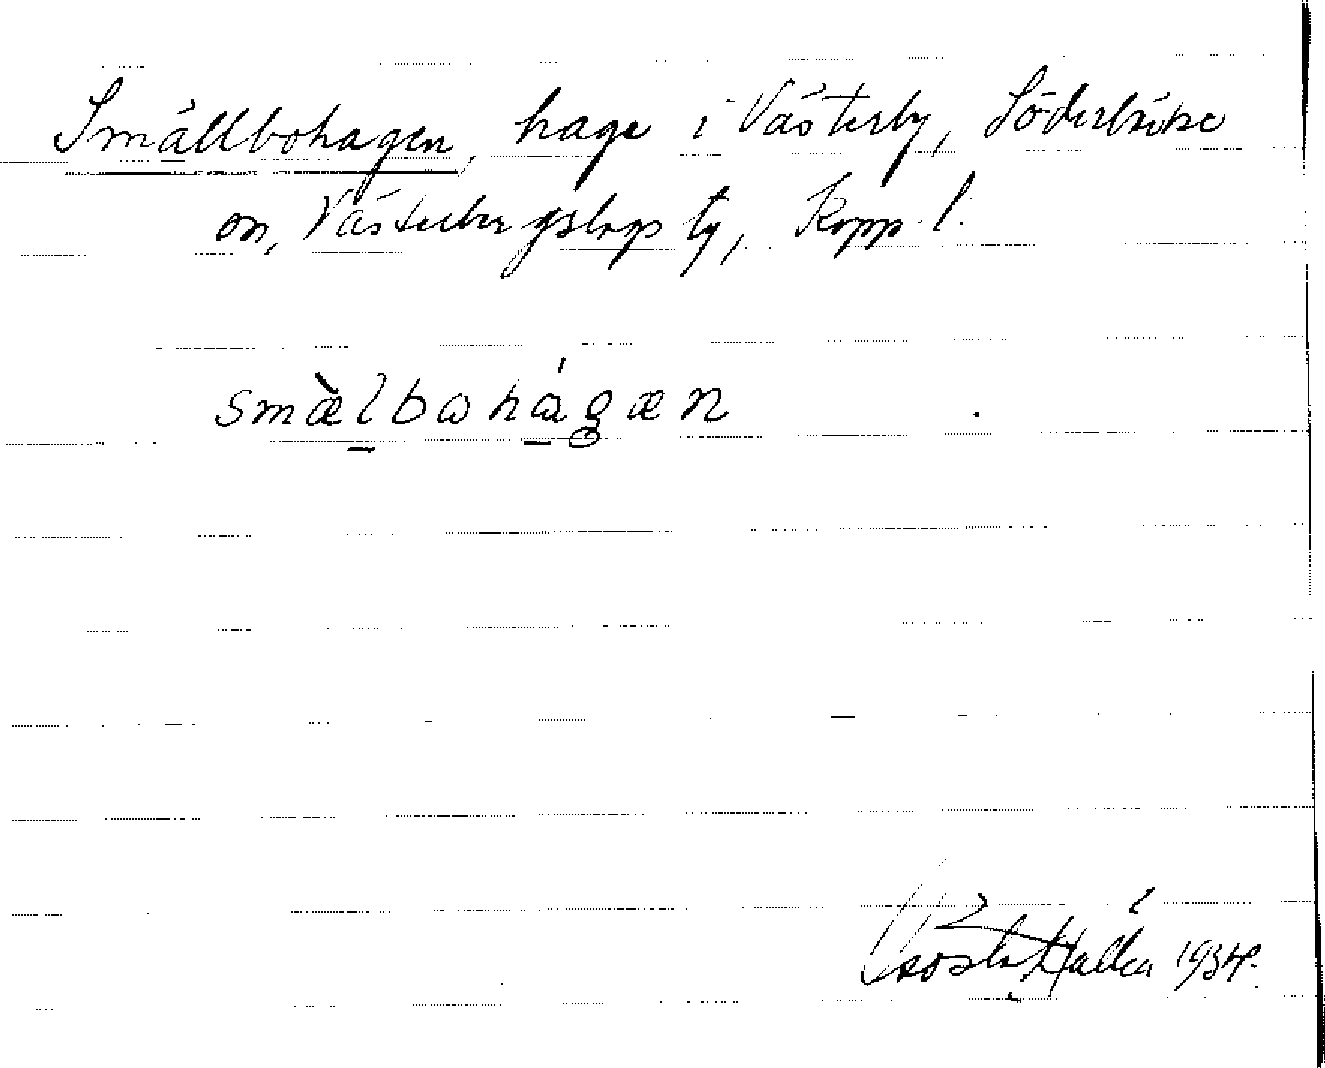 Smällbohagen, hage i Västerby, Söderbärke
sn, Västerbergslags tg, Kopp. l.
smælbohagæn
Gösta Hallén 1934.